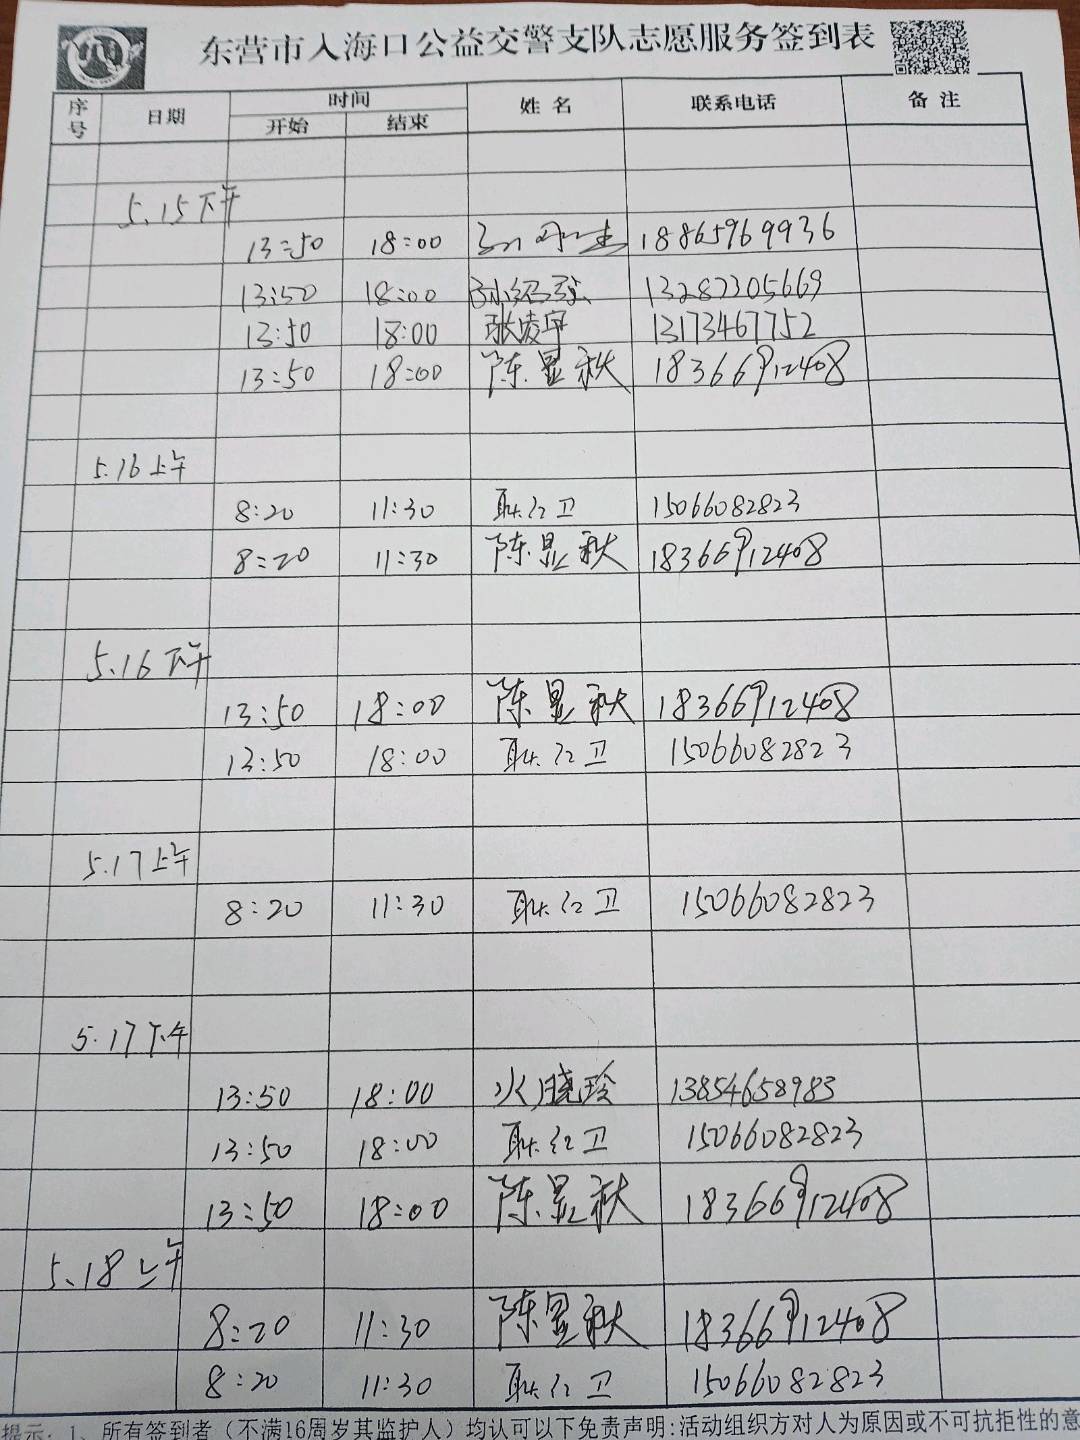 东营市入海口公益交警支队志愿服务签到表
序号 日期 时间 开始 结束 姓名 联系电话 备注
5.15下午
13:50 18:00 18865969936
13:50 18:00 13287305669
13:50 18:00 张凌宇 13173467752
13:50 18:00 陈显秋 18366912408
5.16上午
8:20 11:30 耿红卫 15066082823
8:20 11:30 陈显秋 18366912408
5.16下午
13:50 18:00 陈显秋 18366912408
13:50 18:00 耿红卫 15066082823
5.17上午
8:20 11:30 耿红卫 15066082823
5.17下午
13:50 18:00 晓玲 13854658983
13:50 18:00 耿红卫 15066082823
13:50 18:00 陈显秋 18366912408
5.18上午
8:20 11:30 陈显秋 18366912408
8:20 11:30 耿红卫 15066082823
提示:1、所有签到者(不满16周岁其监护人)均认可以下免责声明:活动组织方对人为原因或不可抗拒性的意